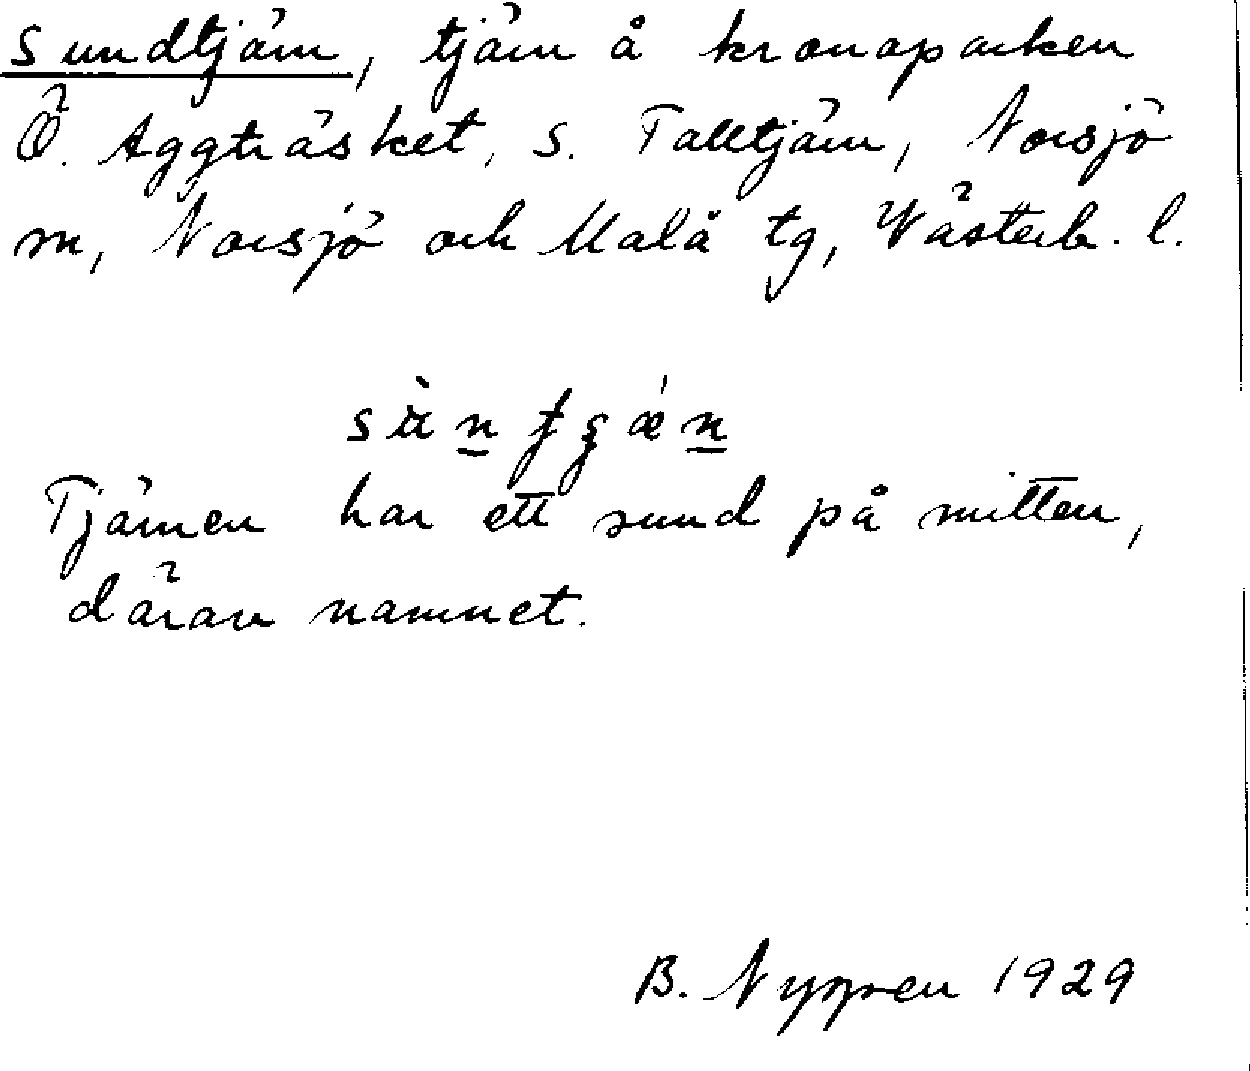 Sundtjärn, tjärn å kronoparken
Ö. Aggträsket, S. Talltjärn, Norsjö
sn, Norsjö och Malå tg, Västerb. l.
Tjärnen har ett sund på mitten,
därav namnet.
B. Nygren 1929